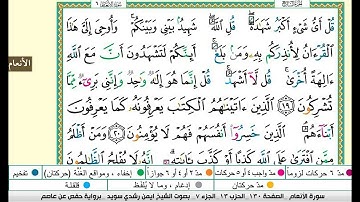 قُلْ أَىُّ شَىْءٍ أَكْبَرُ شَهَٰدَةً ۖ قُلِ ٱللَّهُ ۖ شَهِيدٌۢ بَيْنِى وَبَيْنَكُمْ ۚ وَأُوحِىَ إِلَىَّ هَٰذَا
ٱلْقُرْءَانُ لِأُنذِرَكُم بِهِۦ وَمَنۢ بَلَغَ ۚ أَئِنَّكُمْ لَتَشْهَدُونَ أَنَّ مَعَ ٱللَّهِ
الأنعام
ءَالِهَةً أُخْرَىٰ ۚ قُل لَّآ أَشْهَدُ ۚ قُلْ إِنَّمَا هُوَ إِلَٰهٌ وَٰحِدٌ وَإِنَّنِى بَرِىٓءٌ مِّمَّا
تُشْرِكُونَ ﴿١٩﴾ ٱلَّذِينَ ءَاتَيْنَٰهُمُ ٱلْكِتَٰبَ يَعْرِفُونَهُۥ كَمَا يَعْرِفُونَ
أَبْنَآءَهُمُ ۘ ٱلَّذِينَ خَسِرُوٓا۟ أَنفُسَهُمْ فَهُمْ لَا يُؤْمِنُونَ ﴿٢٠﴾ وَمَنْ أَظْلَمُ
مِمَّنِ ٱفْتَرَىٰ عَلَى ٱللَّهِ كَذِبًا أَوْ كَذَّبَ بِـَٔايَٰتِهِۦٓ ۗ إِنَّهُۥ لَا يُفْلِحُ ٱلظَّٰلِمُونَ
مد ٦ حركات لزوماً مد ٢ أو ٤ أو ٦ جوازاً إخفاء ، ومواقع الغُنَّة (حركتان) تفخيم
مدّ حركتان إدغام ، وما لا يُلفَظ قلقلة
سورة الأنعام الصفحة ١٣٠ الحزب ١٣ الجزء ٧ بصوت الشيخ أيمن رشدي سويد برواية حفص عن عاصم